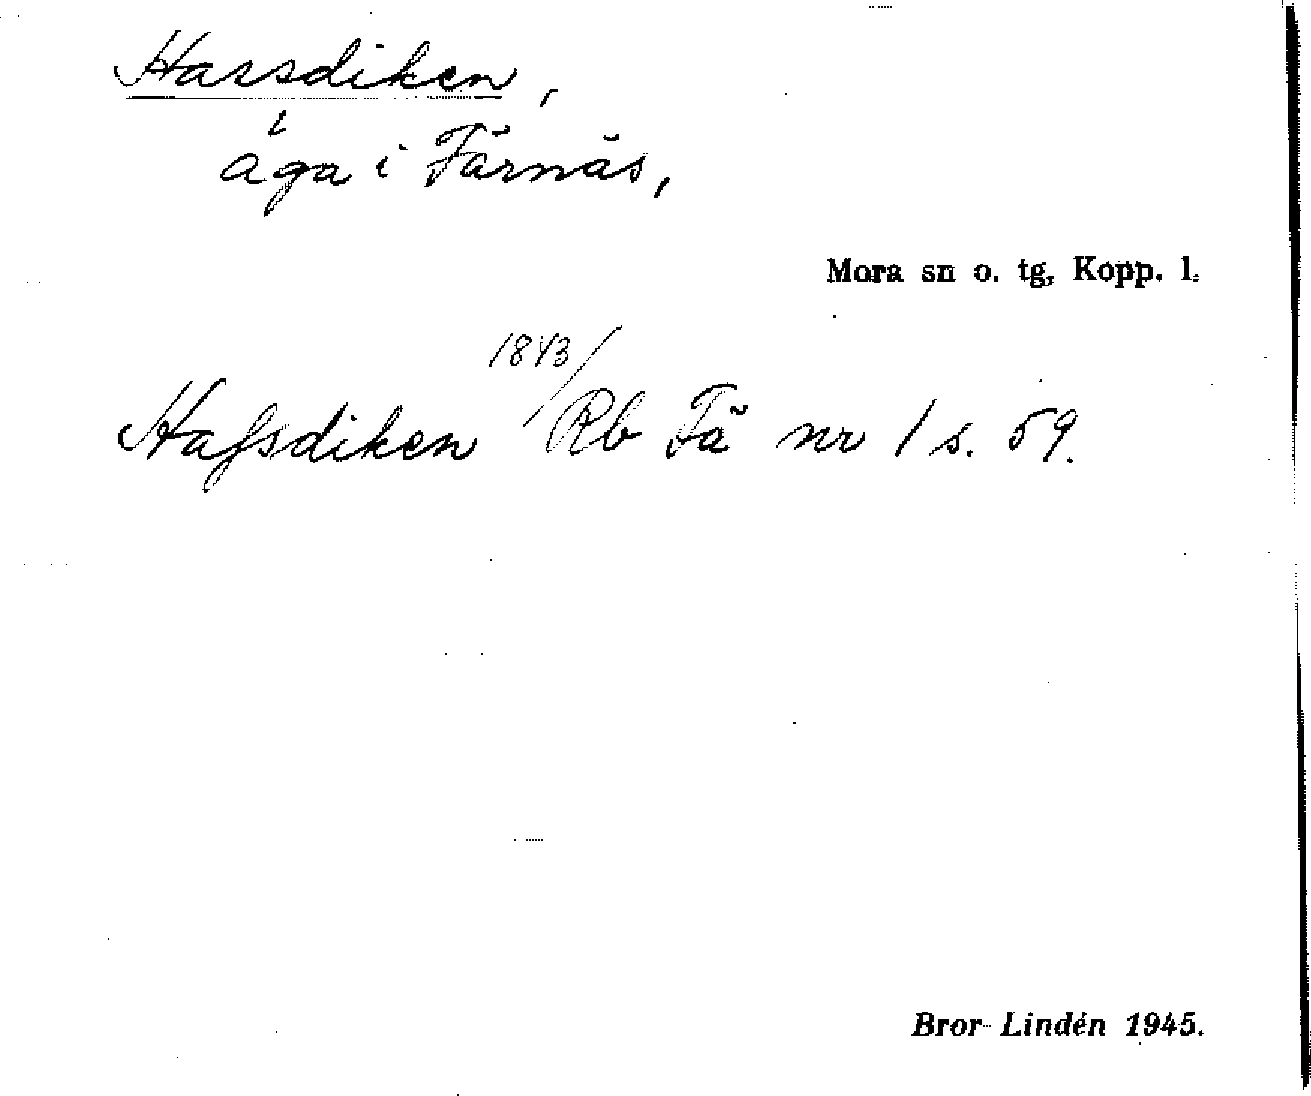 Hassdiken,
äga i Färnäs,
Mora sn o. tg, Kopp. l.
1843/
Hafsdiken Rb Fä nr 1 s. 59.
Bror Lindén 1945.